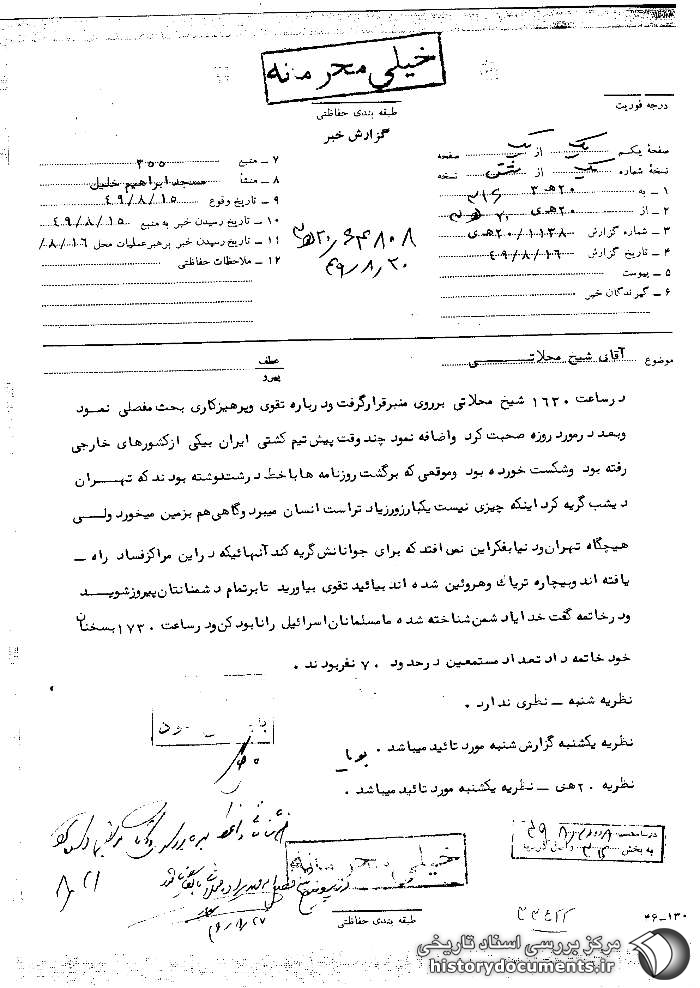 خیلی محرمانه
طبقه بندی حفاظتی
گزارش خبر
درجه فوریت
صفحه یکم یک از یک صفحه
نسخه شماره یک از هشت نسخه
۱ ـ به ۲۰ هـ ۳ ۳۱۶
۲ ـ از ۲۰ هـ ی
۳ ـ شماره گزارش ۲۰/۱۱۳۸ هـ ی
۴ ـ تاریخ گزارش ۴۹/۸/۱۶
۵ ـ پیوست
۶ ـ گیرندگان خبر
۷ ـ منبع ۳۰۰
۸ ـ منشأ مسجد ابراهیم خلیل
۹ ـ تاریخ وقوع ۴۹/۸/۱۵
۱۰ ـ تاریخ رسیدن خبر به منبع ۴۹/۸/۱۵
۱۱ ـ تاریخ رسیدن خبر برهبر عملیات محل ۸/۱۶/
۱۲ ـ ملاحظات حفاظتی
۴۹/۸/۲۰
موضوع آقای شیخ محلاتی
عطف
پیرو
در ساعت ۱۶۳۰ شیخ محلاتی بر روی منبر قرار گرفت و درباره تقوی و پرهیزکاری بحث مفصلی نمود
و بعد در مورد روزه صحبت کرد واضافه نمود چند وقت پیش تیم کشتی ایران بیکی از کشورهای خارجی
رفته بود وشکست خورده بود وموقعی که برگشت روزنامه ها با خط درشت نوشته بودند که تهران
دیشب گریه کرد اینکه چیزی نیست یکبار زور زیاد تر است انسان میبرد و گاهی هم بزمین میخورد ولی
هیچگاه تهران و دنیا بفکر این نمی افتد که برای جوانانش گریه کند آنهائیکه در این مراکز فساد راه ـ
یافته اند و بیچاره تریاك وهروئین شده اند بیائید تقوی بیاورید تا بر تمام دشمنانتان پیروز شوید
و در خاتمه گفت خدایا دشمن شناخته شده ما مسلمانان اسرائیل را نابود کن و در ساعت ۱۷۳۰ بسخنان
خود خاتمه داد تعداد مستمعین در حدود ۷۰ نفر بودند .
نظریه شنبه ـ نظری ندارد .
نظریه یکشنبه گزارش شنبه مورد تائید میباشد .
نظریه ۲۰ هـ ی ـ نظریه یکشنبه مورد تائید میباشد .
خیلی محرمانه
طبقه بندی حفاظتی
به بخش ۳۱۶
۴۶ـ۱۳۰
مرکز بررسی اسناد تاریخی
historydocuments.ir